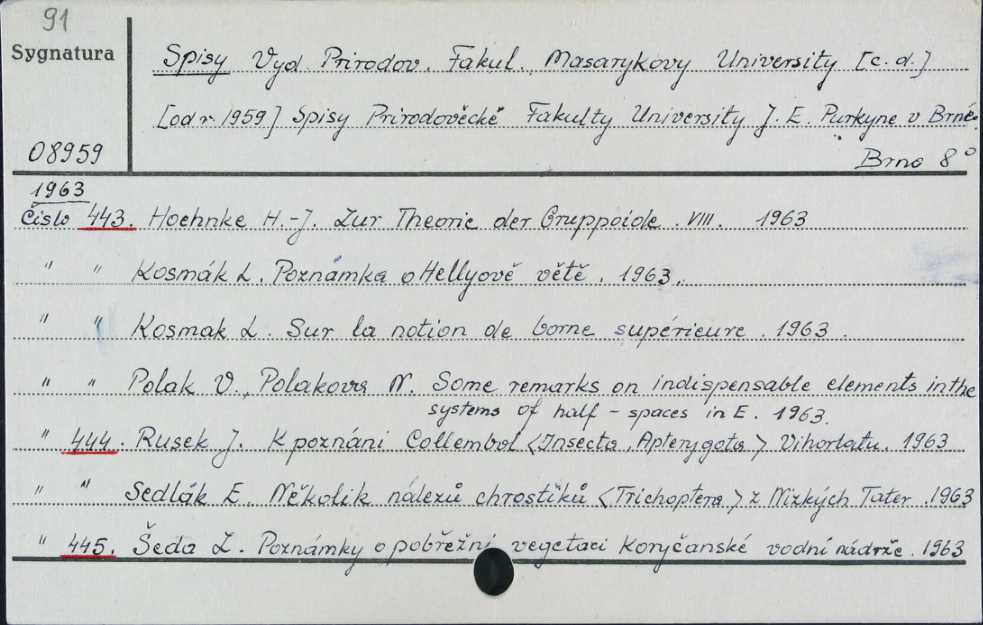 91
Sygnatura
Spisy Vyd. Prirodov. Fakul. Masarykovy University [c. d.]
[od r. 1959] Spisy Prirodovĕcké Fakulty University J. E. Purkyne v Brné.
08959
Brno 8°
1963
Čislo 443. Hoehnke H.-J. Zur Theorie der Gruppoide. VIII. 1963
" " Kosmák L. Poznámka o Hellyově větě. 1963.
" " Kosmak L. Sur la notion de borne supérieure. 1963.
" " Polak V., Polakova N. Some remarks on indispensable elements in the
systems of half-spaces in E. 1963.
" 444. Rusek J. K poznáni Collembol <Insecta, Apterygota> Vihorlatu. 1963
" " Sedlák E. Několik nálezů chrostíků <Trichoptera> z Nizkých Tater. 1963
" 445. Šeda Z. Poznámky o pobřežni vegetaci Koryčanské vodní nádrže. 1963